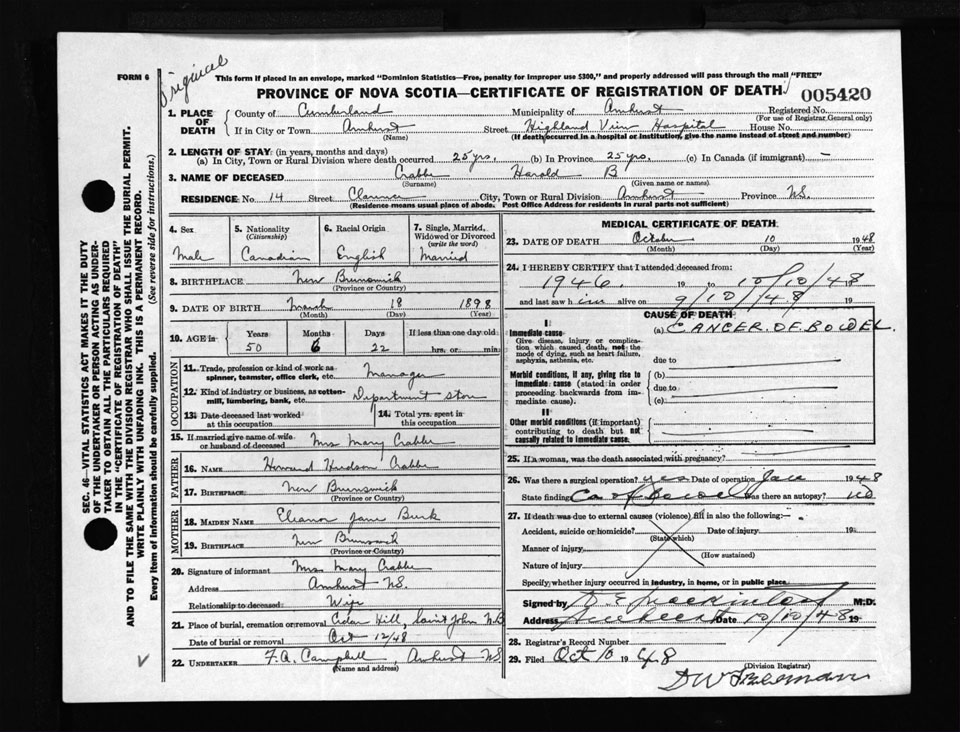 Original
FORM 6
This form if placed in an envelope, marked "Dominion Statistics—Free, penalty for improper use $300," and properly addressed will pass through the mail "FREE"
PROVINCE OF NOVA SCOTIA—CERTIFICATE OF REGISTRATION OF DEATH
005420
1. PLACE OF DEATH
County of Cumberland Municipality of Amherst Registered No.
(For use of Registrar General only)
If in City or Town Amherst Street Highland View Hospital House No.
(Name) (If death occurred in a hospital or institution, give the name instead of street and number)
2. LENGTH OF STAY (in years, months and days)
(a) In City, Town or Rural Division where death occurred 25 yrs. (b) In Province 25 yrs. (c) In Canada (if immigrant) —
3. NAME OF DECEASED Crabbe Harold B
(Surname) (Given name or names)
RESIDENCE: No. 14 Street Clarence City, Town or Rural Division Amherst Province N.S.
(Residence means usual place of abode. Post Office Address for residents in rural parts not sufficient)
4. Sex
Male
5. Nationality
(Citizenship)
Canadian
6. Racial Origin
English
7. Single, Married, Widowed or Divorced
(write the word)
Married
8. BIRTHPLACE New Brunswick
(Province or Country)
9. DATE OF BIRTH March 18 1898
(Month) (Day) (Year)
10. AGE in
Years Months Days If less than one day old
50 6 22 hrs. or min.
OCCUPATION
11. Trade, profession or kind of work as
spinner, teamster, office clerk, etc. Manager
12. Kind of industry or business, as cotten-
mill, lumbering, bank, etc. Department Store
13. Date deceased last worked
at this occupation
14. Total yrs. spent in
this occupation
15. If married give name of wife
or husband of deceased Mrs Mary Crabbe
FATHER
16. NAME Howard Hudson Crabbe
17. BIRTHPLACE New Brunswick
(Province or Country)
MOTHER
18. MAIDEN NAME Eleanor Jane Burk
19. BIRTHPLACE New Brunswick
(Province or Country)
20. Signature of informant Mrs Mary Crabbe
Address Amherst N.S.
Relationship to deceased Wife
21. Place of burial, cremation or removal Cedar Hill, Saint John N.B
Date of burial or removal Oct 12/48
22. UNDERTAKER F. A. Campbell, Amherst N.S.
(Name and address)
MEDICAL CERTIFICATE OF DEATH
23. DATE OF DEATH October 10 1948
(Month) (Day) (Year)
24. I HEREBY CERTIFY that I attended deceased from:
1946. 19 to 10/10/48
and last saw him alive on 9/10/48 19
CAUSE OF DEATH
I
Immediate cause
(a) CANCER OF BOWEL
Give disease, injury or complica-
tion which caused death, not the
mode of dying, such as heart failure,
asphyxia, asthenia, etc.
due to
Morbid conditions, if any, giving rise to
immediate cause (stated in order
proceeding backwards from im-
mediate cause).
(b)
due to
(c)
II
Other morbid conditions (if important)
contributing to death but not
causally related to immediate cause.
25. If a woman, was the death associated with pregnancy?
26. Was there a surgical operation? yes Date of operation Jan 1948
State finding Ca of Bowel Was there an autopsy? no
27. If death was due to external causes (violence) fill in also the following:—
Accident, suicide or homicide? Date of injury 19
(State which)
Manner of injury
(How sustained)
Nature of injury
Specify whether injury occurred in industry, in home, or in public place.
Signed by M.D.
Address Amherst Date 10/10/48 19
28. Registrar's Record Number
29. Filed Oct 10 1948
(Division Registrar)
SEC. 46—VITAL STATISTICS ACT MAKES IT THE DUTY
OF THE UNDERTAKER OR PERSON ACTING AS UNDER-
TAKER TO OBTAIN ALL THE PARTICULARS REQUIRED
IN THE "CERTIFICATE OF REGISTRATION OF DEATH"
AND TO FILE THE SAME WITH THE DIVISION REGISTRAR WHO SHALL ISSUE THE BURIAL PERMIT.
WRITE PLAINLY WITH UNFADING INK. THIS IS A PERMANENT RECORD.
Every item of information should be carefully supplied. (See reverse side for instructions.)